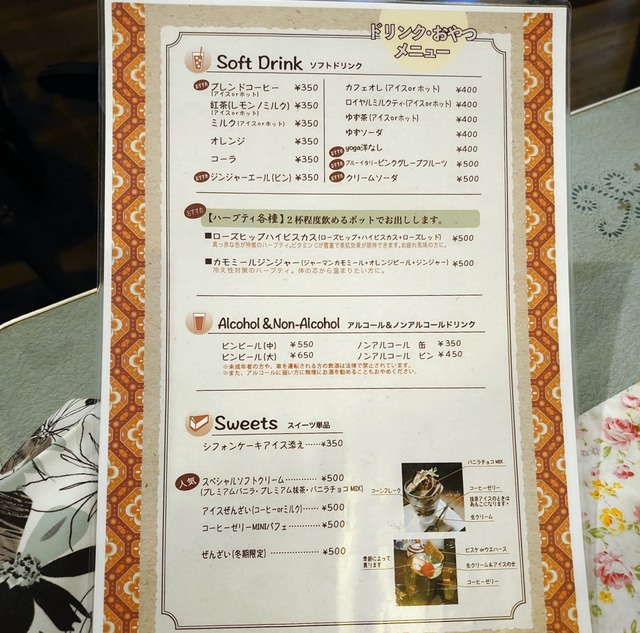 ドリンク・おやつ
メニュー
Soft Drink ソフトドリンク
ブレンドコーヒー ¥350
(アイスorホット)
紅茶(レモン/ミルク) ¥350
(アイスorホット)
ミルク(アイスorホット) ¥350
オレンジ ¥350
コーラ ¥350
ジンジャーエール(ビン) ¥350
カフェオレ(アイスorホット) ¥400
ロイヤルミルクティ(アイスorホット) ¥400
ゆず茶(アイスorホット) ¥400
ゆずソーダ ¥400
yoga洋なし ¥400
ブルーイタリーピンクグレープフルーツ ¥500
クリームソーダ ¥500
【ハーブティ各種】2杯程度飲めるポットでお出しします。
■ローズヒップハイビスカス(ローズヒップ+ハイビスカス+ローズレッド) ¥500
真っ赤な色が特徴のハーブティ。ビタミンCが豊富で美肌効果が期待できます。お疲れ気味の方に。
■カモミールジンジャー(ジャーマンカモミール+オレンジピール+ジンジャー) ¥500
冷え性対策のハーブティ。体の芯から温まりたい方に。
Alcohol&Non-Alcohol アルコール&ノンアルコールドリンク
ビンビール(中) ¥550
ビンビール(大) ¥650
ノンアルコール 缶 ¥350
ノンアルコール ビン ¥450
※未成年者の方や、車を運転される方の飲酒は法律で禁止されています。
※また、アルコールに弱い方に無理にお酒を勧めることもおやめください。
Sweets スイーツ単品
シフォンケーキアイス添え……¥350
人気 スペシャルソフトクリーム…………¥500
(プレミアムバニラ・プレミアム抹茶・バニラチョコMIX)
アイスぜんざい(コーヒーorミルク)……¥500
コーヒーゼリーMINIパフェ…………¥500
ぜんざい(冬期限定)………………¥500
バニラチョコMIX
コーンフレーク
コーヒーゼリー
抹茶アイスのときは
あんこになります
生クリーム
季節によって
異ります
ビスケorウエハース
生クリーム&アイスのせ
コーヒーゼリー